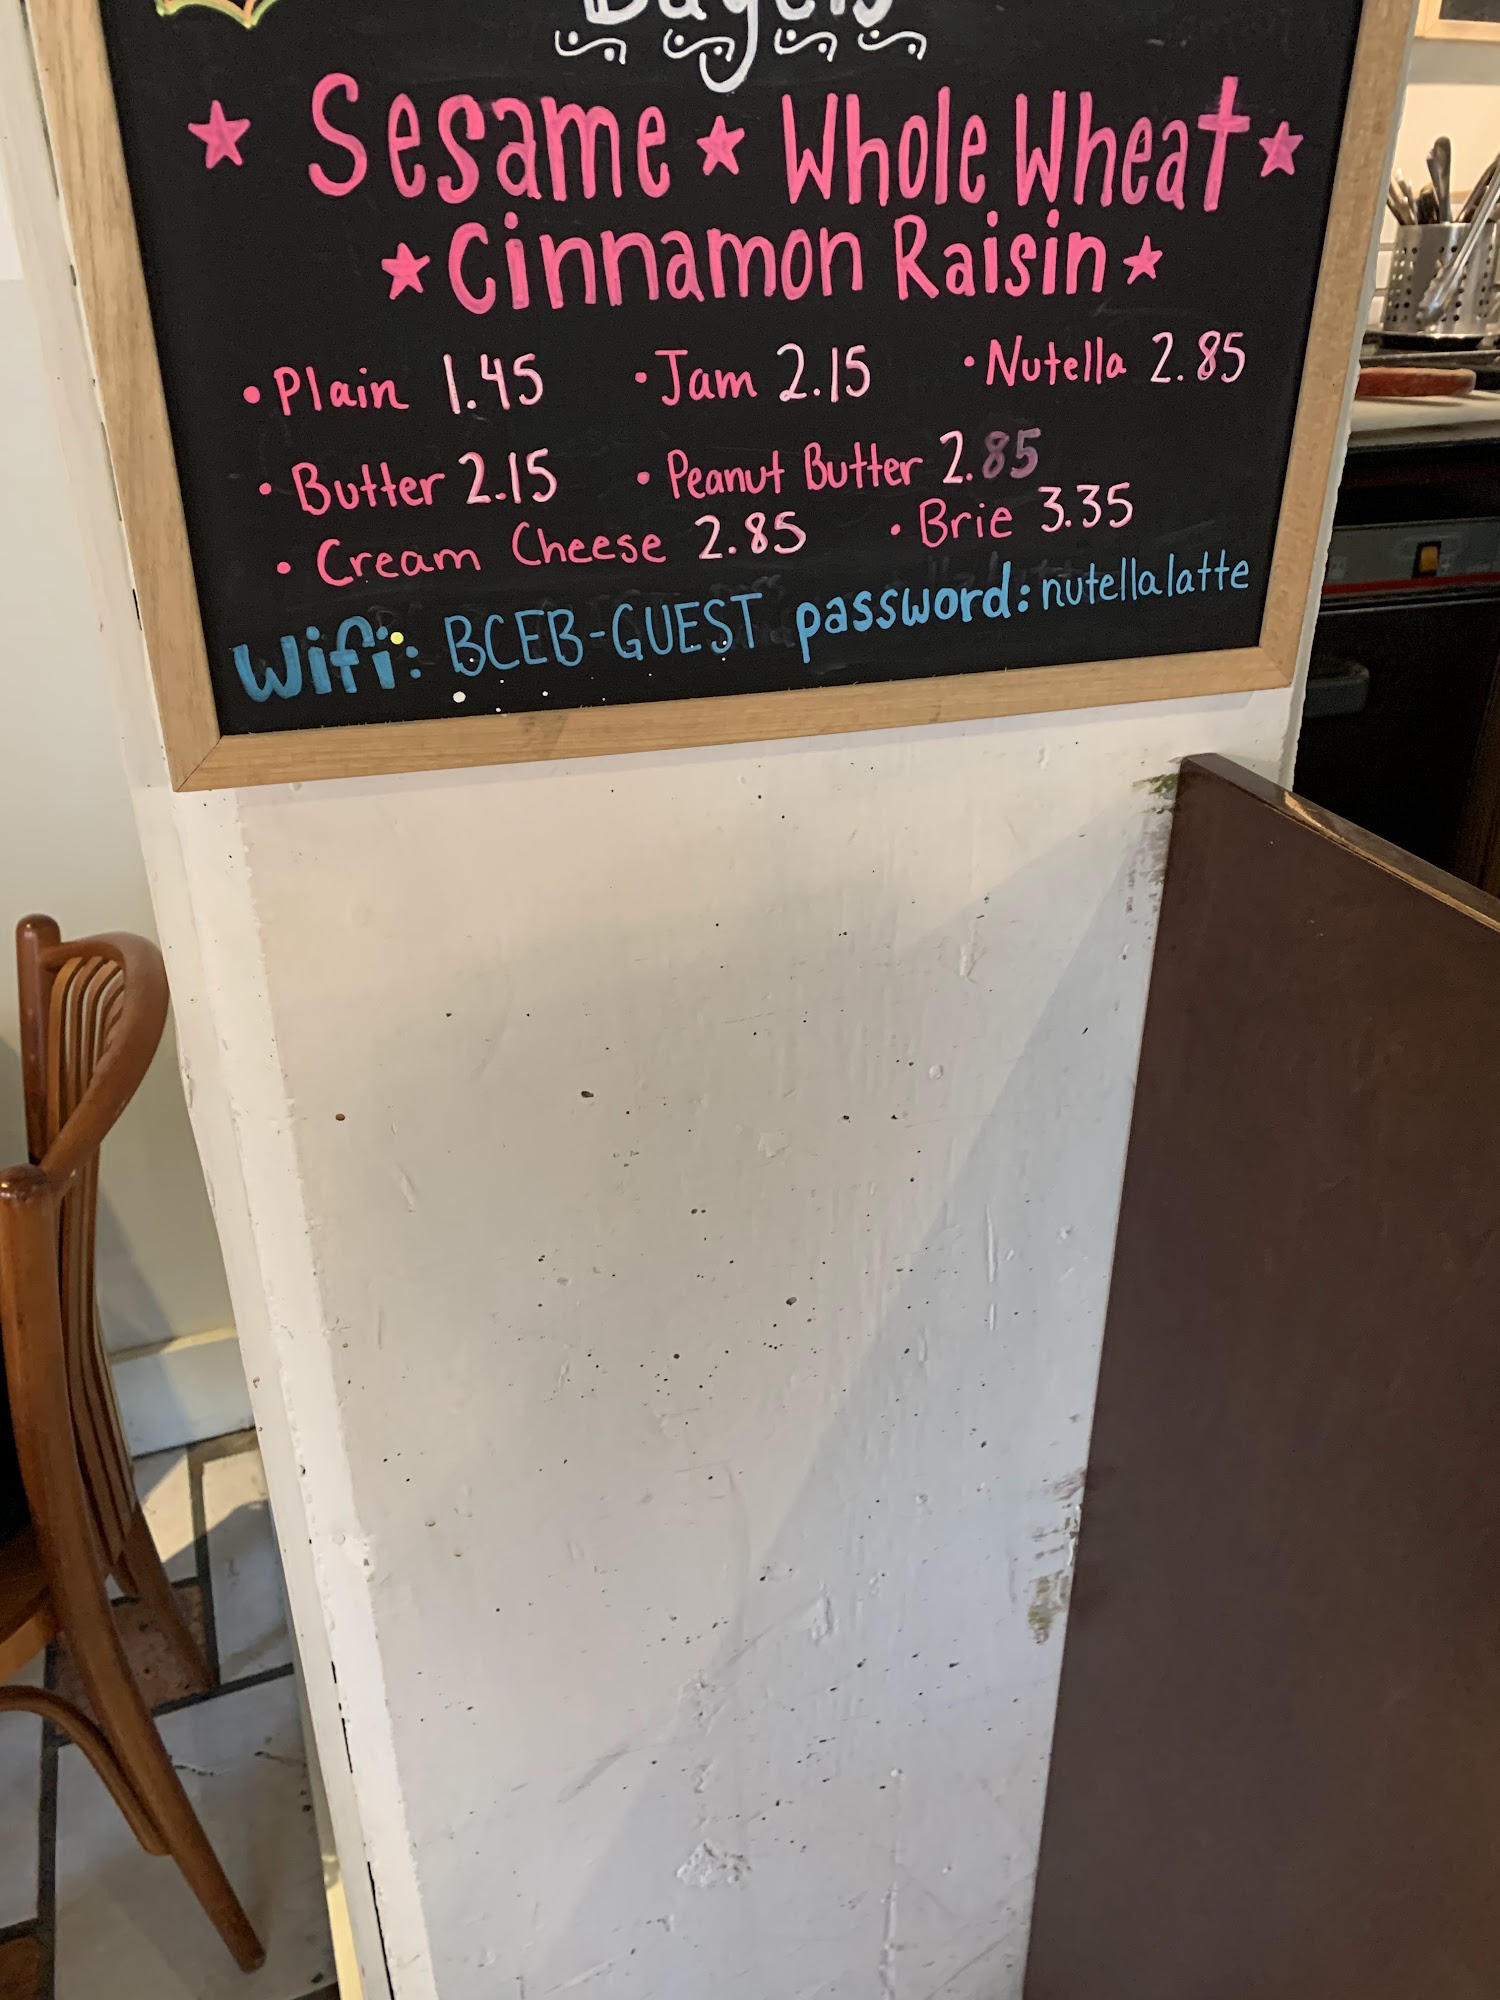 Bagels
★ Sesame ★ Whole Wheat ★
★ Cinnamon Raisin ★
• Plain 1.45 • Jam 2.15 • Nutella 2.85
• Butter 2.15 • Peanut Butter 2.85
• Cream Cheese 2.85 • Brie 3.35
Wifi: BCEB-GUEST password: nutellalatte